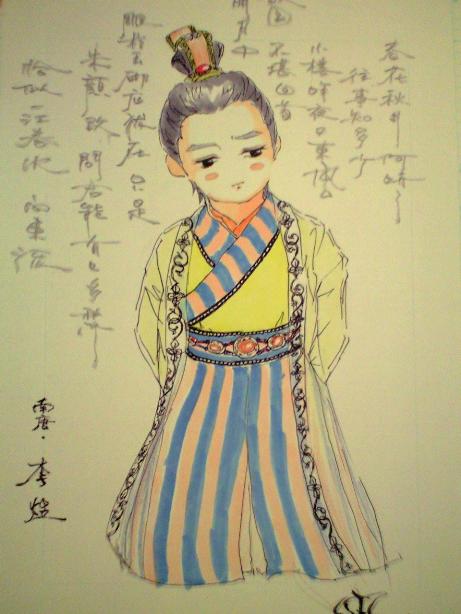 春花秋月何時了
往事知多少
小楼昨夜又東風
不堪回首
国
月中
雕栏玉砌应犹在 只是
朱顏改 問君能有几多愁
恰似一江春水向東流
南唐·李煜